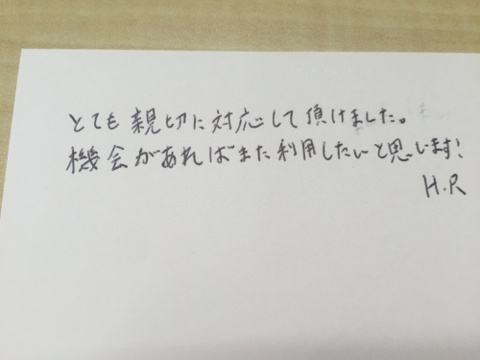 とても親切に対応して頂けました。
機会があればまた利用したいと思います!
H.R